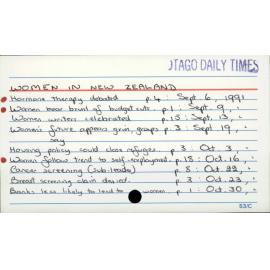 OTAGO DAILY TIMES
WOMEN IN NEW ZEALAND
Hormone therapy debated p.4 : Sept. 6, 1991
Women bear brunt of budget cuts. p.1 : Sept. 9, "
Women writers celebrated p.15 : Sept. 13, "
Women's future appears grim, groups p.3 Sept 19, "
say
Housing policy could close refuges. p.3 : Oct 3, "
Women follow trend to self-employment. p.18 : Oct. 16, "
Cancer screening (sub-leads) p.8 : Oct. "
Breast screening claim denied. p.3 : Oct. 23, "
Banks less likely to lend to women p.1 : Oct. 30, "
53/C